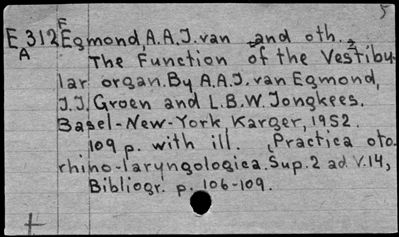 5
F
E312 Egmond, A.A.J. van and oth.
A The Function of the Vestibu-
lar organ. By A.A.J. van Egmond,
J.J. Groen and L.B.W. Jongkees.
Basel-New-York Karger, 1952.
109 p. with ill. (Practica oto-
rhino-laryngologica. Sup. 2 ad V.14,
Bibliogr. p. 106-109.
+